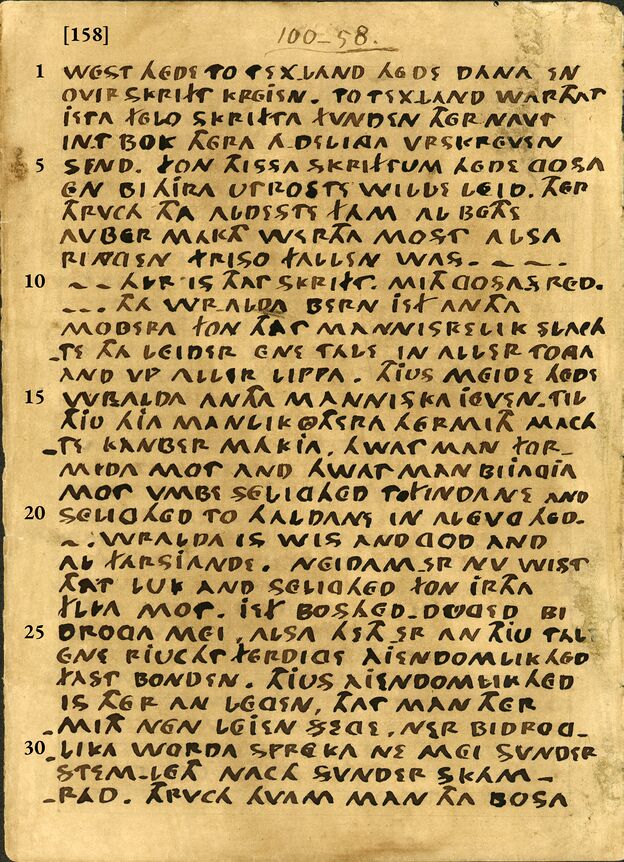 [158]
100-58.
1 WEST HEDE TO TEXLAND HEDE DANA EN
OVIR SKRIFT KREIEN. TO TEXLAND WARTHAT
ISTA FELO SKRIFTA FVNDEN THER NAVT
INT BOK THERA ADELINGA VRSKREVEN
5 SEND. FON THISSA SKRIFTUM HEDE GOSA
EN BI HIRA UTROSTE WILLE LEID. THER
THRVCH THA ALDESTE FAM AL BETHE
AVBER MAKTH WERTHA MOST ALSA
RINGEN FRISO FALLEN WAS. ~ – ~ .
10 ~ ~ HIR IS THAT SKRIFT. MITH GOSAS RED.
- - - THA WRALDA BERN IEF ANTHA
MODERA FON THAT MANNISKELIK SLACH
-TE THA LEIDER ENE TALE IN ALLER TONGA
AND VP ALLER LIPPA. THIUS MEIDE HEDE
15 WRALDA ANTHA MANNISKA IEVEN. TIL
THIU HIA MANLIK OTHERA HERMITH MACH
-TE KANBER MAKIA. HWAT MAN FOR-
MIDA MOT AND HWAT MAN BIIAGIA
MOT VMBE SELIGHED TO FINDANE AND
20 SELIGHED TO HALDANE IN AL EVGHED.
~ . WRALDA IS WIS AND GOD AND
AL FARSIANDE. NEIDAM ER NV WIST
THAT LUK AND SELIGHED FON IRTHA
FLIA MOT. IEF BOSHED DUGED BI
25 DROGA MEI, ALSA HETH ER AN THIU TAL
ENE RIUCHT FERDIGE AIENDOMLIKHED
FAST BONDEN. THIUS AIENDOMLIKHED
IS THER AN LEGEN, THAT MAN THER
-MITH NEN LEIEN SEZE, NER BIDROG-
30 -LIKA WORDA SPREKA NE MEI SVNDER
STEM-LETH NACH SVNDER SKAM-
-RAD. THRVCH HVAM MAN THA BOSA